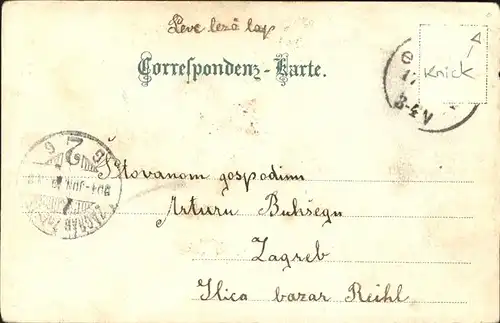 Leve lező lap
Correspondenz-Karte.
Knick
3-4N
Štovanom gospodinu
Arturu Buhšegu
Zagreb
Ilica bazar Reihl
ZAGRAB